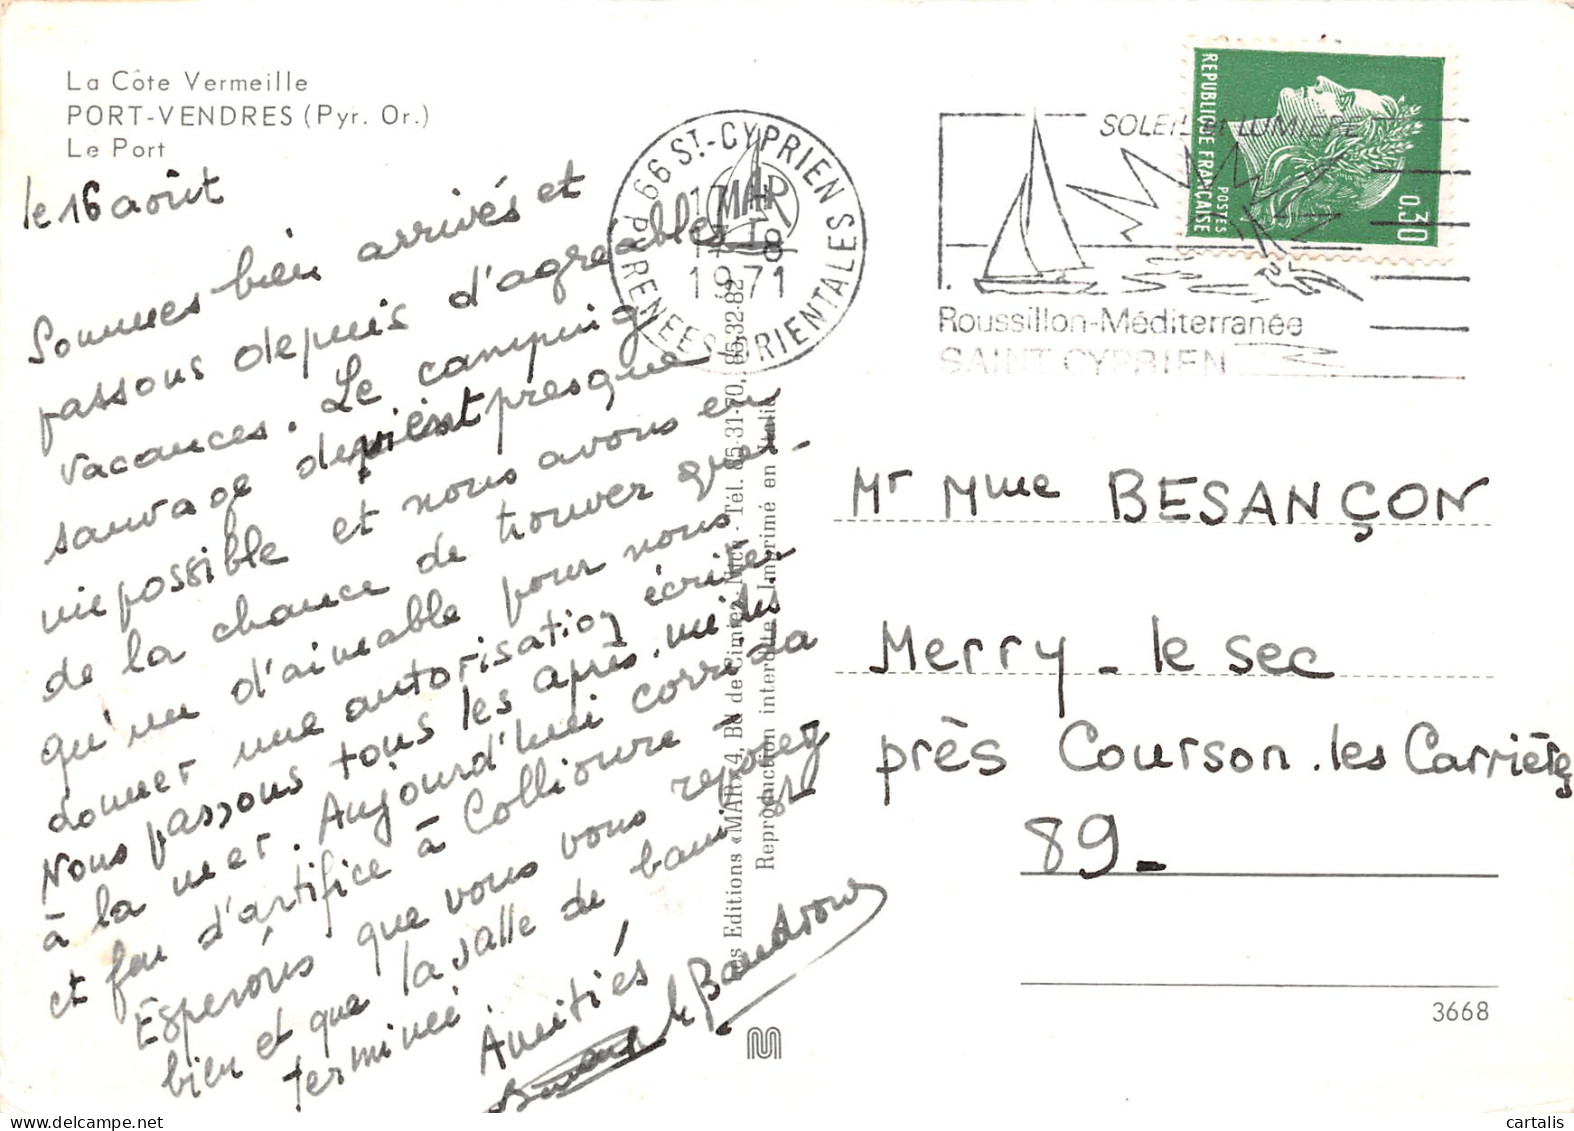 La Côte Vermeille
PORT-VENDRES (Pyr. Or.)
Le Port
le 16 août
Sommes bien arrivés et
passons depuis d'agréables
vacances. Le camping
sauvage devient presque
impossible et nous avons eu
de la chance de trouver quel-
qu'un d'aimable pour nous
donner une autorisation écrite.
Nous passons tous les après-midis
à la mer. Aujourd'hui corrida
et feu d'artifice à Collioure -
Espérons que vous vous reposez
bien et que la salle de bain est
terminée.
Amitiés
66 ST-CYPRIEN
17 - 8
1971
PYRENEES ORIENTALES
MAR
Les Editions «MAR» 4, Bd de Cimiez - Nice - Tél. 85-31-70, 85-32-82
Reproduction interdite - Imprimé en Italie
SOLEIL et LUMIERE
Roussillon-Méditerranée
SAINT CYPRIEN
REPUBLIQUE FRANÇAISE
POSTES
0,30
Mr Mme BESANÇON
Merry - le sec
près Courson-les Carrières
89 -
3668
cartalis
www.delcampe.net